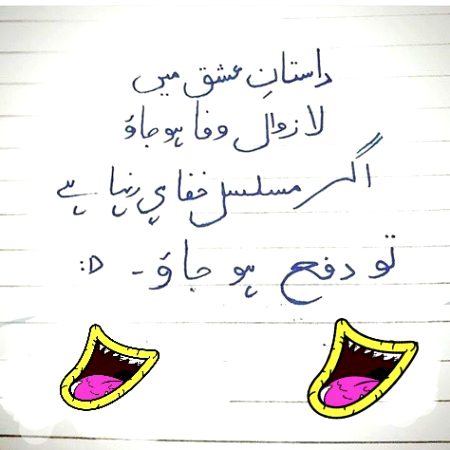 داستانِ عشق میں
لازوال وفا ہو جاؤ
اگر مسلسل خفا ہی رہنا ہے
تو دفع ہو جاؤ۔ :D